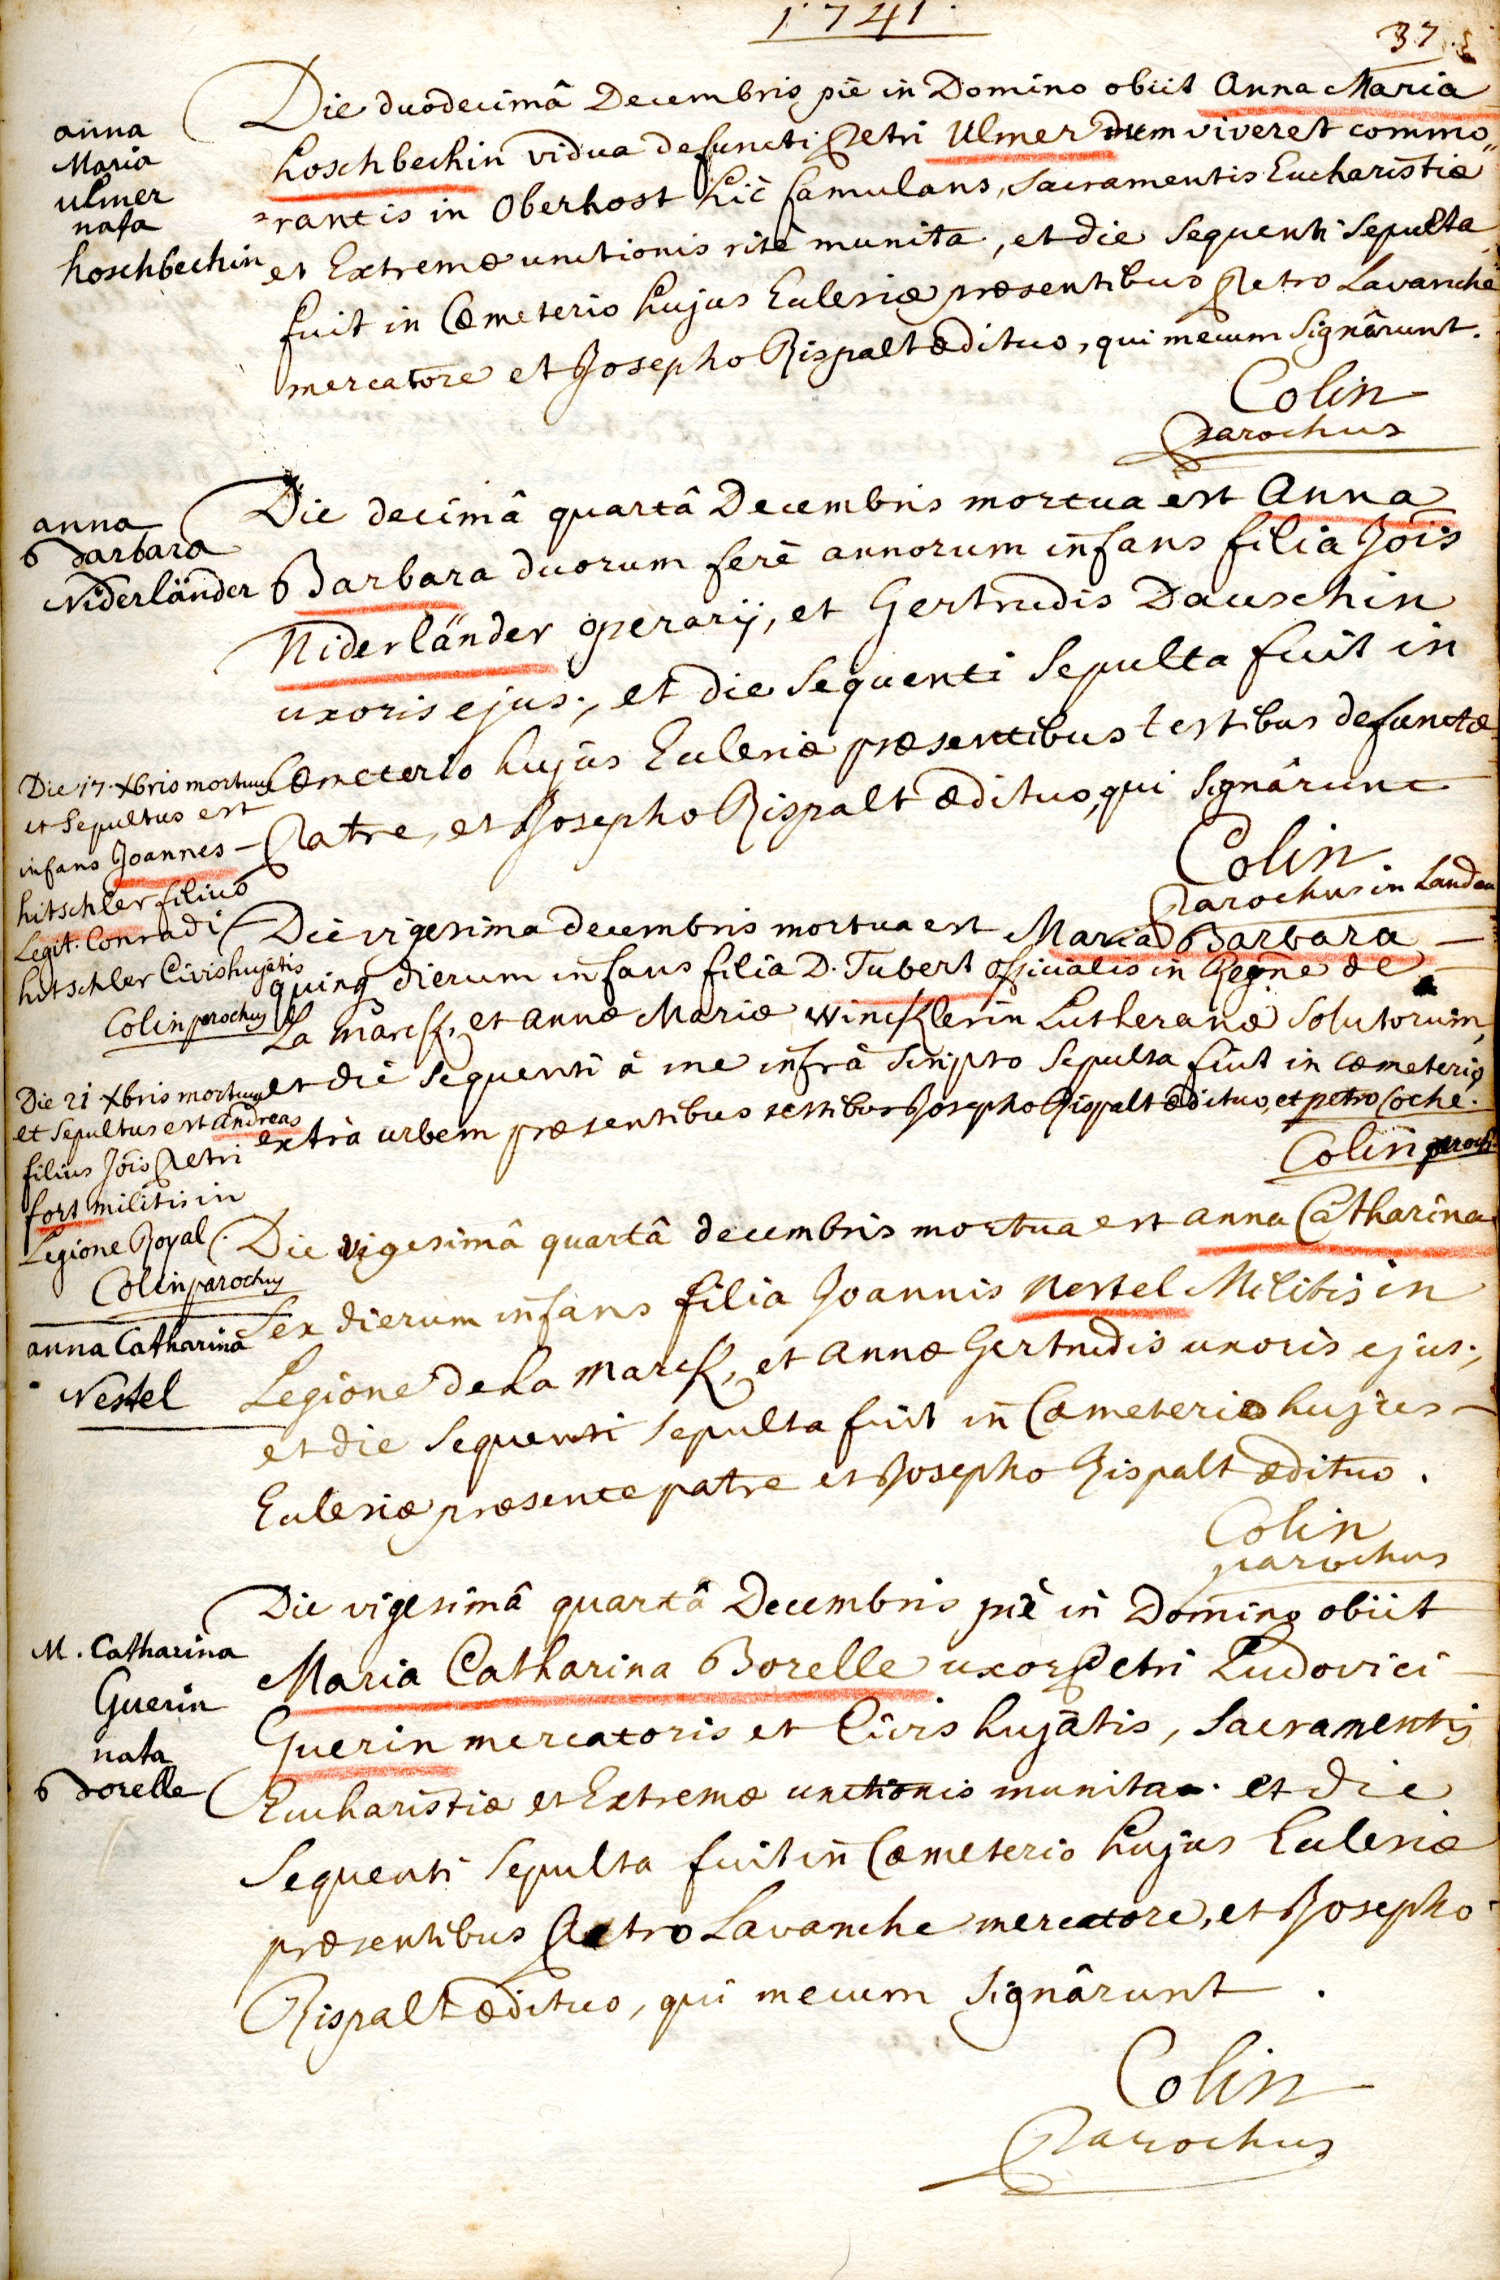 1741.
37.
anna
Maria
ulmer
nata
hoschbechin
Die duodecimâ Decembris piè in Domino obiit Anna Maria
hoschbechin vidua defuncti Petri Ulmer dum viveret commo„
„rantis in Oberhost hîc famulans, Sacramentis Eucharistiæ
et Extremæ unctionis ritè munita, et die sequenti Sepulta
fuit in Cæmeterio hujus Eclesiæ præsentibus Petro Lavanche
mercatore et Josepho Rispalt ædituo, qui mecum signârunt.
Colin
Parochus
anna
Barbara
Niderländer
Die decimâ quartâ Decembris mortua est Anna
Barbara duorum ferè annorum infans filia Jois
Niderländer operarij, et Gertrudis Dauschin
uxoris ejus, et die sequenti Sepulta fuit in
Cæmeterio hujus Eclesiæ præsentibus testibus defunctæ
Patre, et Josepho Rispalt ædituo, qui signârunt
Colin
Parochus in Landau
Die 17. Xbris mortuus
et Sepultus est
infans Joannes
hitschler filius
Legit. Conradi
hitschler Civis hujatis
Colin parochus
Die vigesima decembris mortua est Maria Barbara
quinq dierum infans filia D. Tubert officialis in Regne de
La Marck, et annæ Mariæ Wincklerin Lutheranæ Solutorum,
et die sequenti à me infrà scripto Sepulta fuit in cæmeterio
extrà urbem præsentibus testibus Josepho Rispalt ædituo, et petro Coche.
Colin paroch
Die 21 Xbris mortuus
et Sepultus est andreas
filius Jois Petri
fort militis in
Legione Royal.
Colin parochus
anna Catharina
Nestel
Die vigesimâ quartâ decembris mortua est anna Catharina
Sex dierum infans filia Joannis Nestel Militis in
Legione de La Marck, et annæ Gertrudis uxoris ejus,
et die sequenti sepulta fuit in Cæmeterio hujus
Eclesiæ præsente patre et Josepho Rispalt ædituo.
Colin
parochus
M. Catharina
Guerin
nata
Borelle
Die vigesimâ quartâ Decembris piè in Domino obiit
Maria Catharina Borelle uxor Petri Ludovici
Guerin mercatoris et Civis hujatis, Sacramentis
Eucharistiæ et Extremæ unctionis munita. et die
Sequenti Sepulta fuit in Cæmeterio hujus Eclesiæ
præsentibus Petro Lavanche mercatore, et Josepho
Rispalt ædituo, qui mecum signârunt.
Colin
Parochus